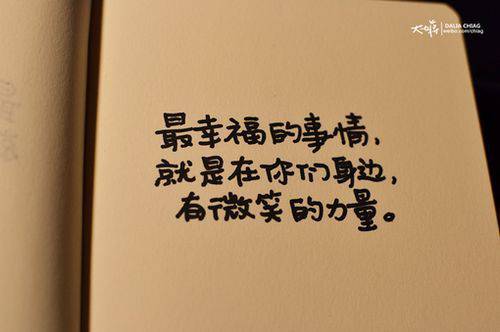 DALIA CHIAG
weibo.com/chiag
最幸福的事情,
就是在你们身边,
有微笑的力量。